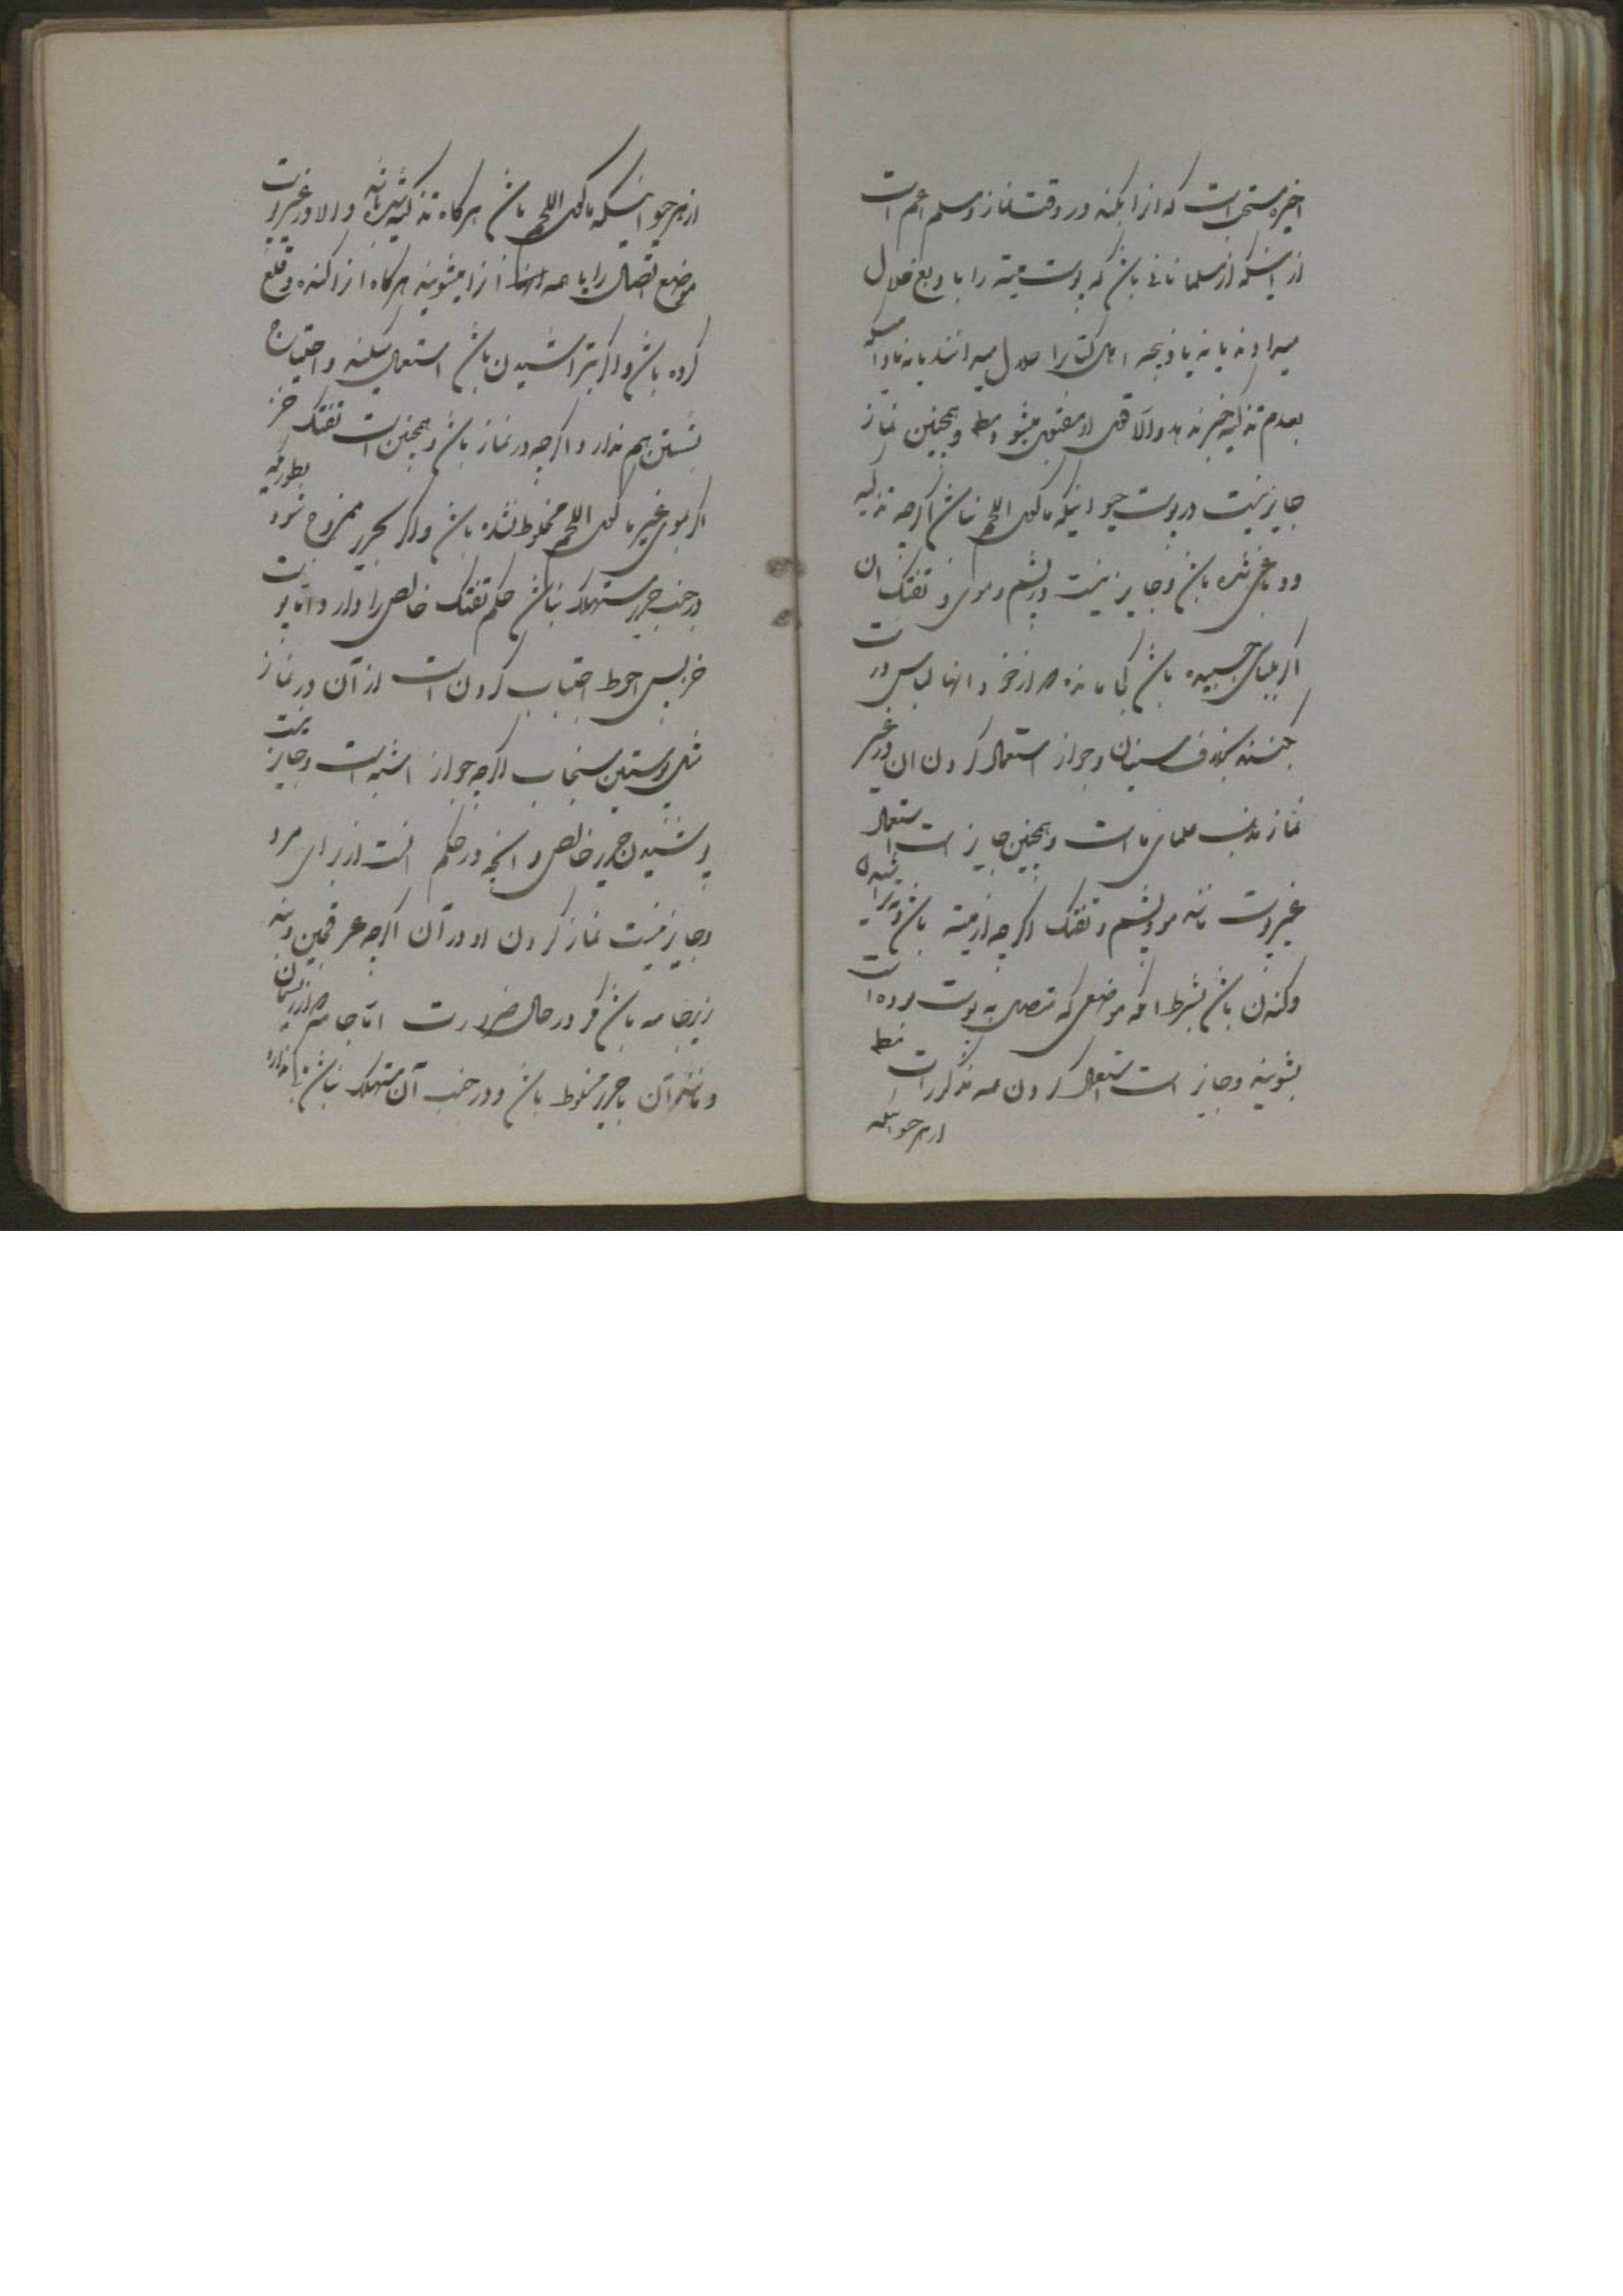 اخیره مستحب است که از او بکند در وقت نماز و مسلم اعم است
از اینکه از مسلمانانی باشد که پوست میته را بدباغ حلال
میداند یا نه یا ذبیحه اهل کتاب را حلال میدانند یا نه
بعدم تذکیه خبر ندهد والا قول او مقبول میشود و همچنین نماز
جایز نیست در پوست حیوانیکه ماکول اللحم نباشد اگرچه تذکیه
و دباغی شده باشد و جایز نیست در پشم و موی و تفتک آن
اگر بلباس چسبیده باشد
و جواز استعمال کردن آن در غیر
نماز مذهب علمای ما است و همچنین جایز است استعمال
غیر پوست مانند مو و پشم و تفتک اگرچه از میته باشد
وکندن باشد بشرط آنکه موضعی که متصل به پوست بوده است
بشویند و جایز است استعمال کردن همه مذکورات
از هر حیوانیکه
از هر حیوانیکه ماکول اللحم باشد هرگاه تذکیه شده باشد والا در غیر پوست
موضع اتصال را یا همه آنها را میشویند هرگاه او را کنده و قلع
کرده باشد و اگر بتراشیدن باشد استعمال میکنند و احتیاج
بشستن هم ندارد و اگرچه در نماز باشد و همچنین است تفتک خز
اگر بموی غیر ماکول اللحم مخلوط نشده باشد و اگر بحریر ممزوج شود بطوریکه
در جنب حریر مستهلک نباشد حکم تفتک خالص را دارد و اما پوست
خز پس احوط اجتناب کردن است از آن در نماز
مثل پوستین سنجاب اگرچه جواز اشبه است و جایز نیست
پوشیدن حریر خالص و آنچه در حکم آنست از برای مرد
و جایز نیست نماز کردن او در آن اگرچه عرقچین و بند
زیرجامه باشد مگر در حال ضرورت اما جامه
و مانند آن با حریر مخلوط باشد و در جنب آن مستهلک نباشد